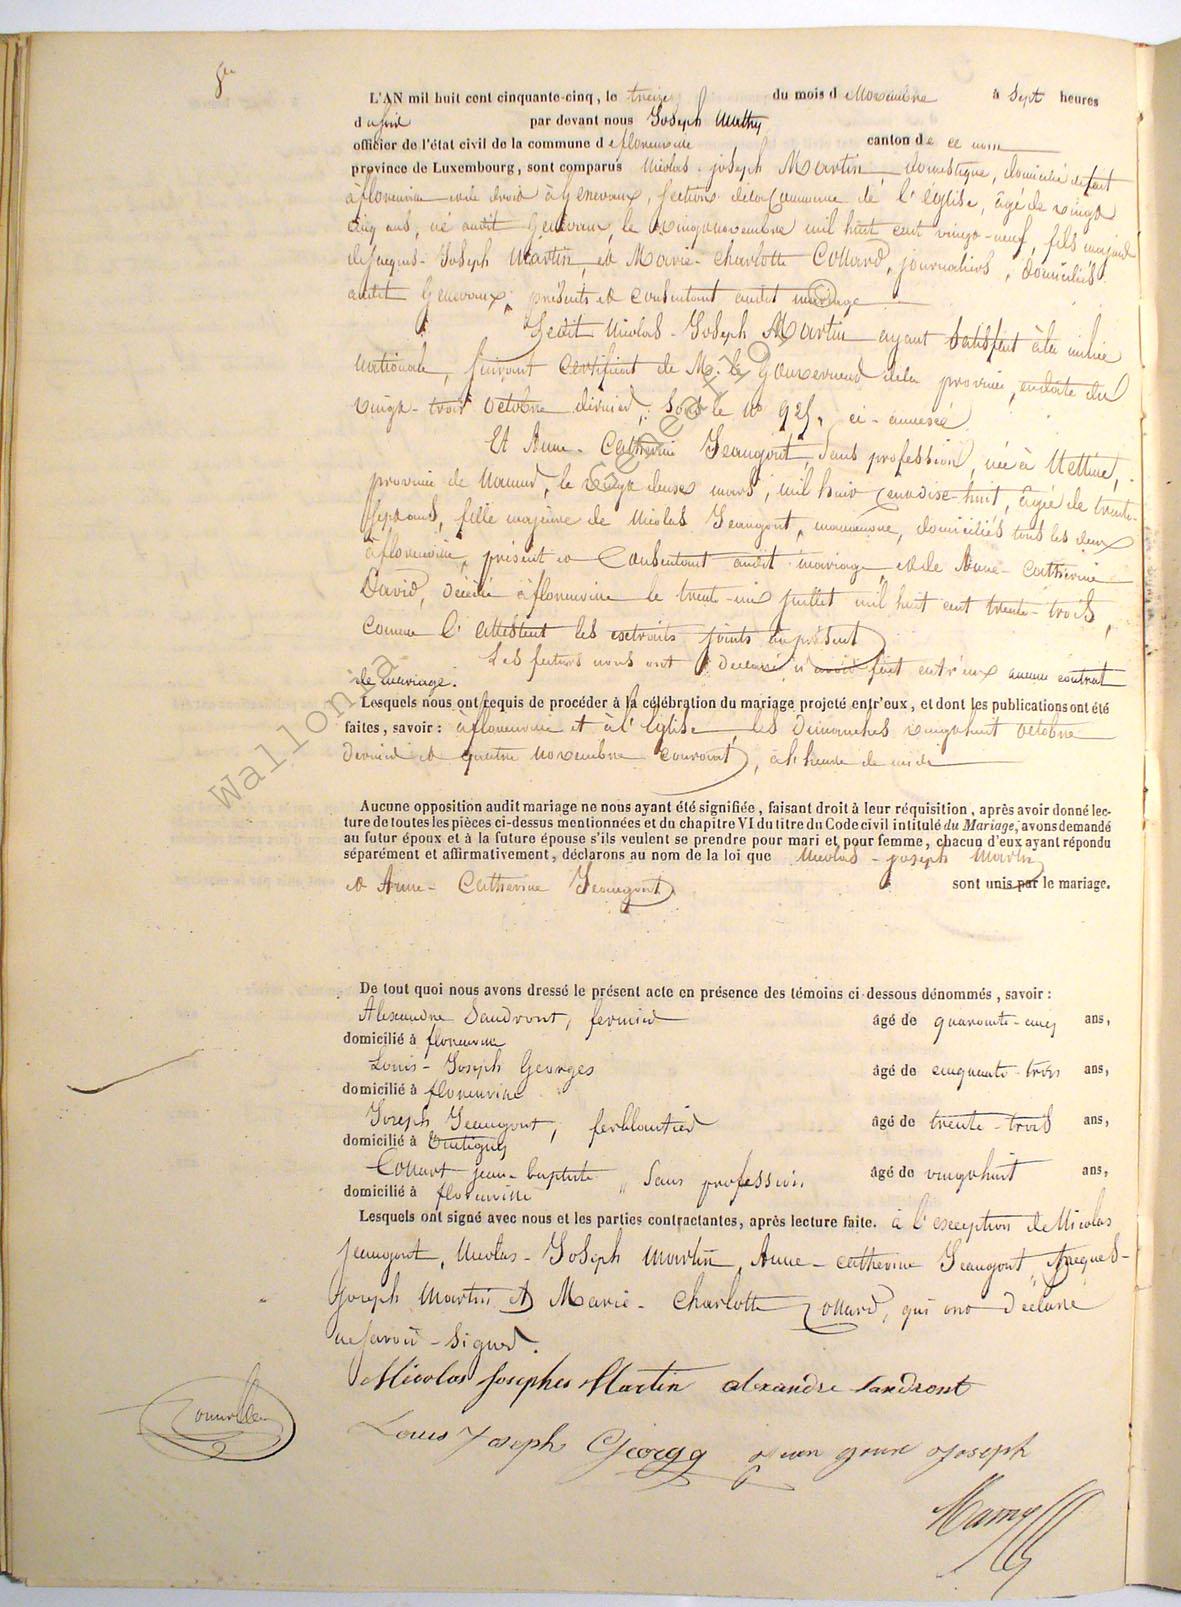 L'AN mil huit cent cinquante-cinq, le treize du mois d e Novembre à sept heures
d u soir par devant nous Joseph Mathy
officier de l'état civil de la commune d e florenville canton de ce nom
province de Luxembourg, sont comparus Nicolas-joseph Martin, domestique, domicilié de fait
à florenville et de droit à Genevaux, section de la Commune de l'église, âgé de vingt
cinq ans, né audit Genevaux, le vingt novembre mil huit cent vingt-neuf, fils majeur
de Jacques-Joseph Martin, et Marie-Charlotte Collard, journaliers, domiciliés
audit Genevaux, présents et consentant audit mariage
Ledit Nicolas-Joseph Martin ayant satisfait à la milice
nationale, suivant certificat de M. le Gouverneur de la province, en date du
vingt-trois octobre dernier, sous le No 925, ci-annexé
Et Anne-Catherine Jeangout, sans profession, née à
province de Namur, le vingt deux mars, mil huit cent dix-huit, âgée de trente-
sept ans, fille majeure de Nicolas Jeangout, manoeuvre, domiciliés tous les deux
à florenville, présent et Consentant audit mariage, et de Anne-Catherine
David, décédée à florenville le trente-un juillet mil huit cent trente-trois,
comme l'attestent les extraits joints au présent
Les futurs nous ont déclaré n'avoir fait entr'eux aucun contrat
de mariage.
Lesquels nous ont requis de procéder à la célébration du mariage projeté entr'eux, et dont les publications ont été
faites, savoir : à florenville et à l'Eglise, les dimanches vingt huit octobre
dernier et quatre novembre courant, à l'heure de midi
Aucune opposition audit mariage ne nous ayant été signifiée, faisant droit à leur réquisition, après avoir donné lec-
ture de toutes les pièces ci-dessus mentionnées et du chapitre VI du titre du Code civil intitulé du Mariage, avons demandé
au futur époux et à la future épouse s'ils veulent se prendre pour mari et pour femme, chacun d'eux ayant répondu
séparément et affirmativement, déclarons au nom de la loi que Nicolas-joseph Martin
et Anne-Catherine Jeangout sont unis par le mariage.
De tout quoi nous avons dressé le présent acte en présence des témoins ci-dessous dénommés, savoir :
Alexandre Sandront, fermier âgé de quarante-cinq ans,
domicilié à florenville
Louis-Joseph Georges âgé de cinquante-trois ans,
domicilié à florenville
Joseph Jeangout, ferblantier âgé de trente-trois ans,
domicilié à
Collart jean-baptiste, Sans profession, âgé de vingt huit ans,
domicilié à florenville
Lesquels ont signé avec nous et les parties contractantes, après lecture faite. à l'exception de Nicolas
Jeangout, Nicolas-Joseph Martin, Anne-catherine Jeangout, Jacques-
Joseph Martin et Marie-Charlotte Collard, qui ont déclaré
ne savoir-signer.
Nicolas Josephes Martin alexandre Sandront
Louis Joseph Georgg joseph
wallonia